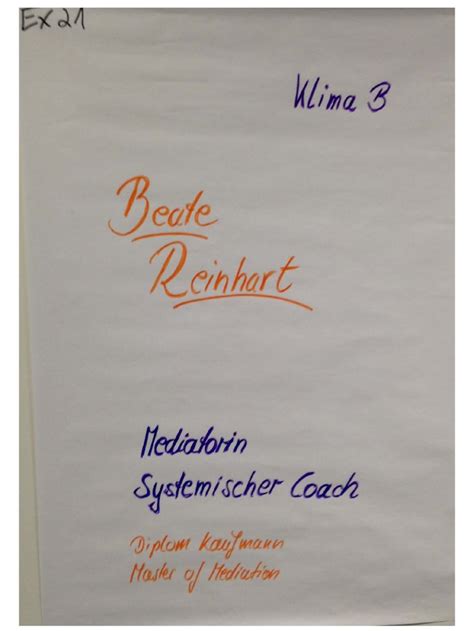 EX 21
Klima B
Beate
Reinhart
Mediatorin
Systemischer Coach
Diplom Kaufmann
Master of Mediation